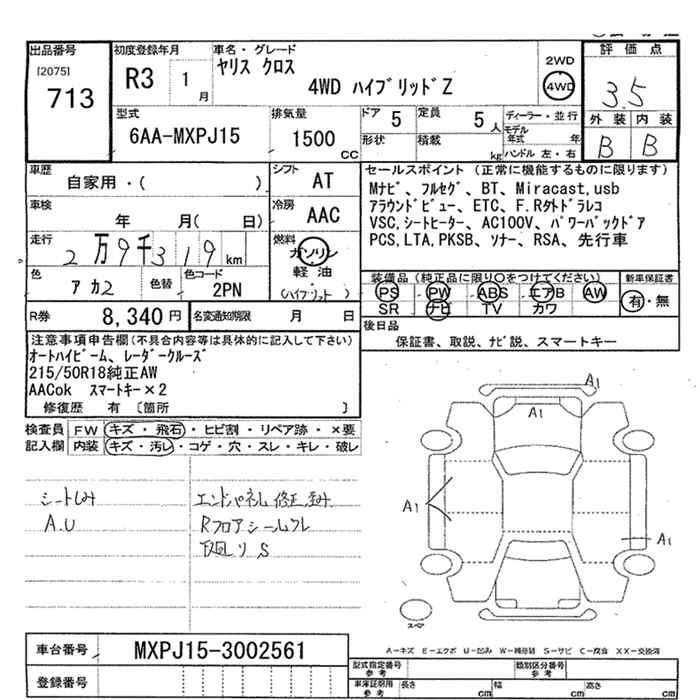 出品番号 初度登録年月 車名・グレード 2WD 評価点
[2075] 713 R3 1月 ヤリス クロス 4WD ハイブリッドZ 4WD 3.5
型式 排気量 ドア 5 定員 5人 ディーラー・並行 外装 内装
6AA-MXPJ15 1500cc 形状 積載 kg モデル年式 年 B B
ハンドル 左・右
車歴 自家用・( ) シフト AT セールスポイント (正常に機能するものに限ります)
Mナビ、フルセグ、BT、Miracast,usb
車検 年 月( 日) 冷房 AAC アラウンドビュー、ETC、F.R外ドラレコ
VSC,シートヒーター、AC100V、パワーバックドア
走行 2万9千319km 燃料 ガソリン PCS,LTA,PKSB、ソナー、RSA、先行車
軽油
(ハイブリット)
色 アカ2 色替 色コード 2PN 装備品 (純正品に限り○をつけてください) 新車保証書
PS PW ABS エアB AW 有・無
SR ナビ TV カワ
R券 8,340円 名変通知期限 月 日 後日品
保証書、取説、ナビ説、スマートキー
注意事項申告欄(不具合内容等は具体的に記入して下さい)
オートハイビーム、レーダークルーズ
215/50R18純正AW
AACok スマートキー×2
修復歴 有 〔箇所 〕
検査員 FW キズ・飛石・ヒビ割・リペア跡・×要
記入欄 内装 キズ・汚レ・コゲ・穴・スレ・キレ・破レ
シートしみ エンドパネル修正済み
A.U Rフロアシールハレ
下廻りS
A1
A1
A1
A1
スペア
A-キズ E-エクボ U-凹み W-補修跡 S-サビ C-腐食 XX-交換済
車台番号 MXPJ15-3002561
登録番号
型式指定番号 参考 類別区分番号 参考
車庫証明用 参考 長さ cm 幅 cm 高さ cm